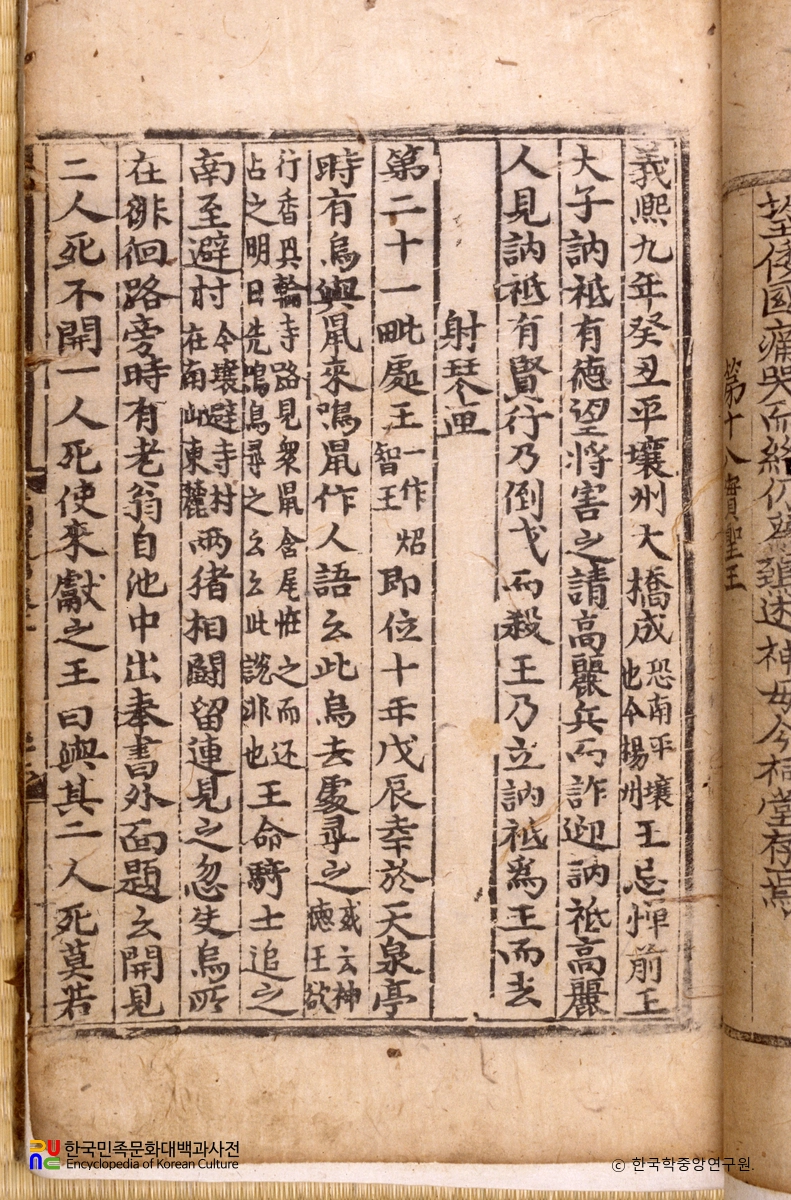 望倭國痛哭而終仍爲鵄述神母今祠堂存焉
第十八實聖王
義熙九年癸丑平壤州大橋成恐南平壤也今楊州王忌憚前王
大子訥祗有德望將害之請高麗兵而詐迎訥祗高麗
人見訥祗有賢行乃倒戈而殺王乃立訥祗爲王而去
射琴匣
第二十一毗處王一作炤智王即位十年戊辰幸於天泉亭
時有烏與鼠來鳴鼠作人語云此烏去處尋之或云神德王欲
行香興輪寺路見衆鼠含尾怪之而还占之明日先鳴烏尋之云云此說非也王命騎士追之
南至避村今壤避寺村在南山東麓兩猪相鬪留連見之忽失烏所
在徘徊路旁時有老翁自池中出奉書外面題云開見
二人死不開一人死使來獻之王曰與其二人死莫若
한국민족문화대백과사전
Encyclopedia of Korean Culture
© 한국학중앙연구원.